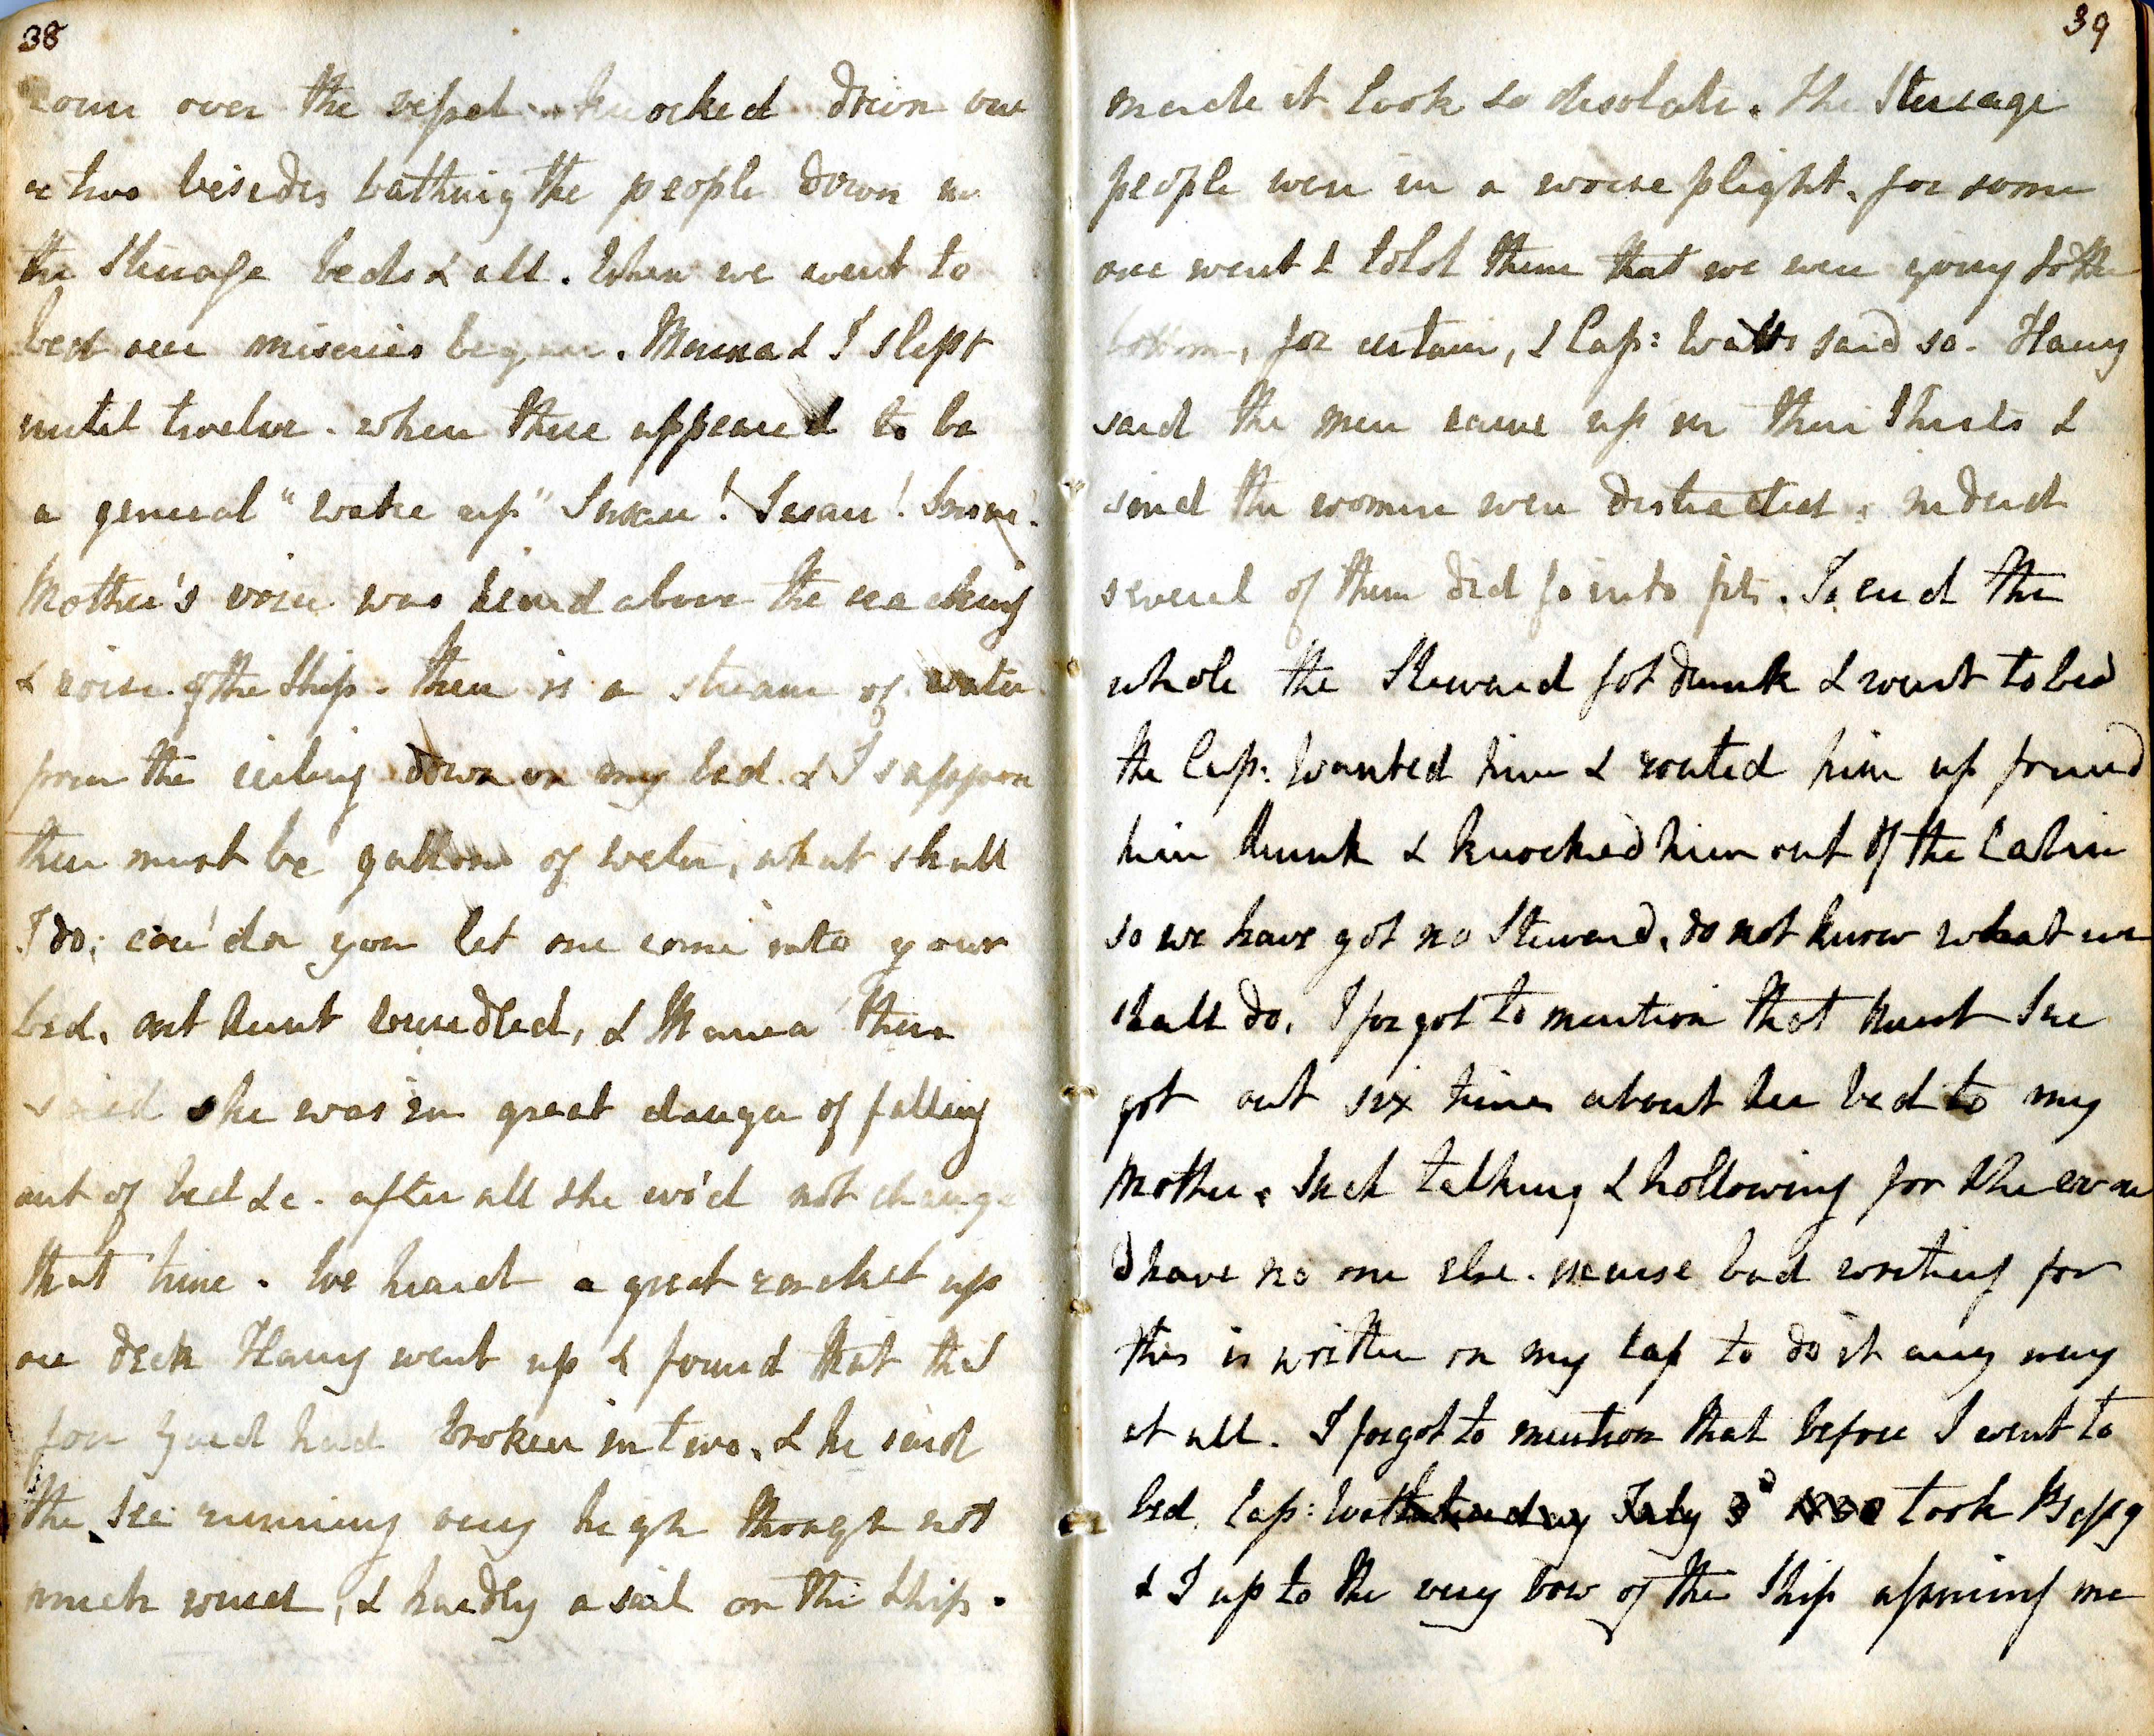 38
come over the vessel knocked down one
or two besides bathing the people down in
the Steerage beds & all. When we went to
bed our miseries began. Mama & I slept
until twelve. when there appeared to be
a general "wake up" Susan! Susan! Susan!
Mother's voice was heard above the creaking
& noise of the Ship. there is a stream of water
from the ceiling down on my bed & I suppose
there must be gallons of water, what shall
I do; cou'dn you let me come into your
bed, out Aunt bundled, & Mama then
said she was in great danger of falling
out of bed &c. after all she wo'd not change
that time. We heard a great racket up
on deck Harry went up & found that the
fore yard had broken in two. & he said
the sea running very high though not
much wind, & hardly a sail on the Ship.
39
made it look so desolate. The Steerage
people were in a worse plight. for some
one went & told them that we were going to the
bottom, for certain, & Cap: Watts said so. Harry
said the men came up in their Shirts &
said the women were distracted. indeed
several of them did go into fits. To end the
whole the Steward got drunk & went to bed
the Cap: wanted him & routed him up found
him drunk & knocked him out of the Cabin
so we have got no Steward, do not know what we
shall do. I forgot to mention that Aunt Sue
got out six times about her bed to my
Mother. Such talking & hollowing for she
I have no one else. excuse bad writing for
this is written on my lap to do it any way
at all. I forgot to mention that before I went to
bed, Cap: Watts July 3d took Betsy
& I up to the very bow of the Ship me